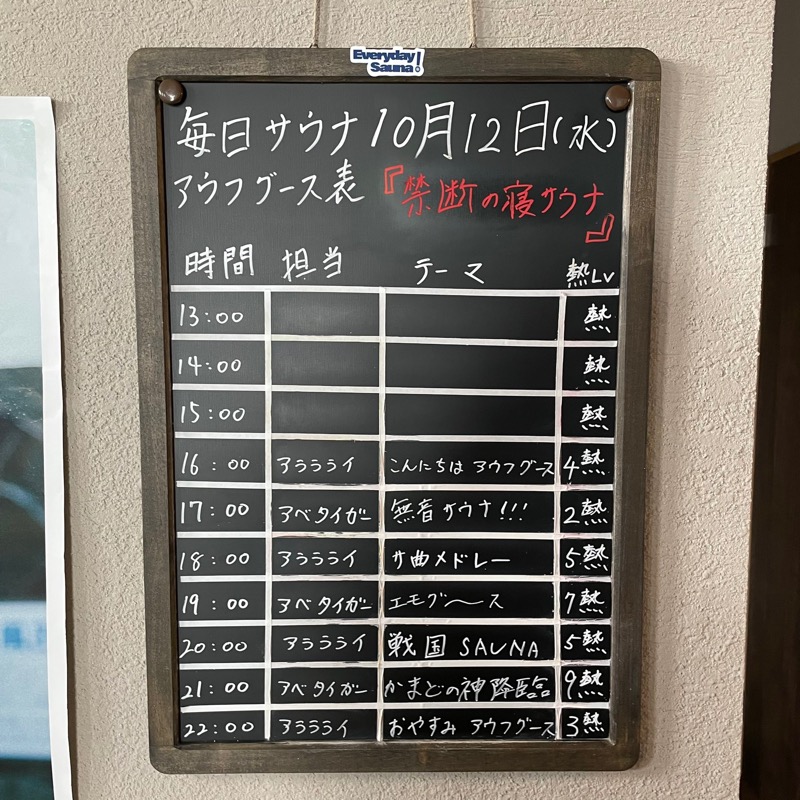 Everyday
Sauna!
毎日サウナ10月12日(水)
アウフグース表 『禁断の寝サウナ』
時間 担当 テーマ 熱Lv
13:00 熱
14:00 熱
15:00 熱
16:00 アラララライ こんにちは アウフグース 4熱
17:00 アベタイガー 無音サウナ!!! 2熱
18:00 アラララライ サ曲メドレー 5熱
19:00 アベタイガー エモグ〜ス 7熱
20:00 アラララライ 戦国SAUNA 5熱
21:00 アベタイガー かまどの神降臨 9熱
22:00 アラララライ おやすみ アウフグース 3熱